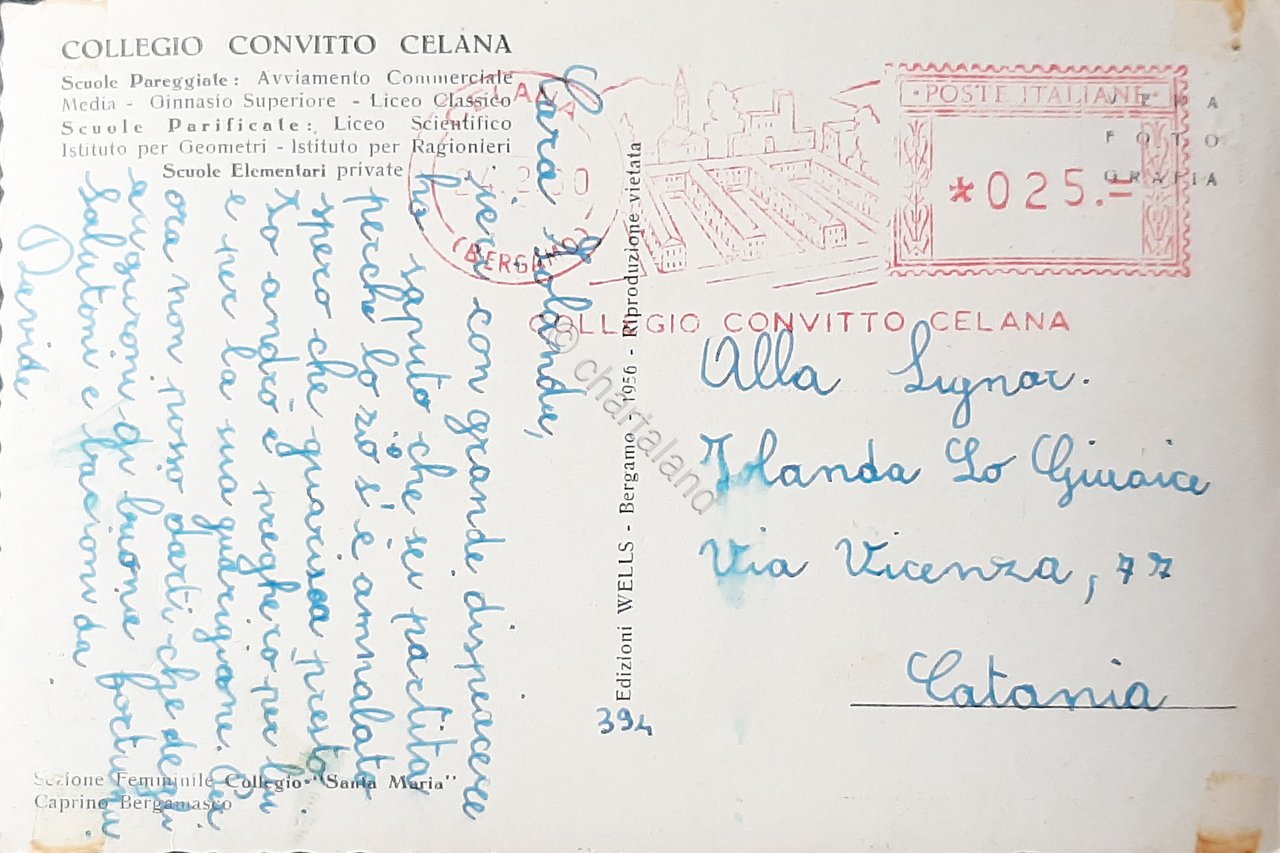 COLLEGIO CONVITTO CELANA
Scuole Pareggiate: Avviamento Commerciale
Media - Ginnasio Superiore - Liceo Classico
Scuole Parificate: Liceo Scientifico
Istituto per Geometri - Istituto per Ragionieri
Scuole Elementari private
CELANA
2.60
(BERGAMO)
POSTE ITALIANE
*025.=
COLLEGIO CONVITTO CELANA
VERA
FOTO
GRAFIA
Cara Iolanda,
ieri con grande dispiacere
ho saputo che sei partita
perchè lo zio s'è ammalato
spero che guarisca presto
Io andrò e pregherò per lui
e per la sua guarigione. Per
ora non posso darti che degli
auguroni di buona fortuna
Salutoni e bacioni da
Davide
Edizioni WELLS - Bergamo - 1956 - Riproduzione vietata
394
Alla Signor.
Iolanda Lo Giudice
Via Vicenza, 77
Catania
Sezione Femminile Collegio "Santa Maria"
Caprino Bergamasco
© chartaland